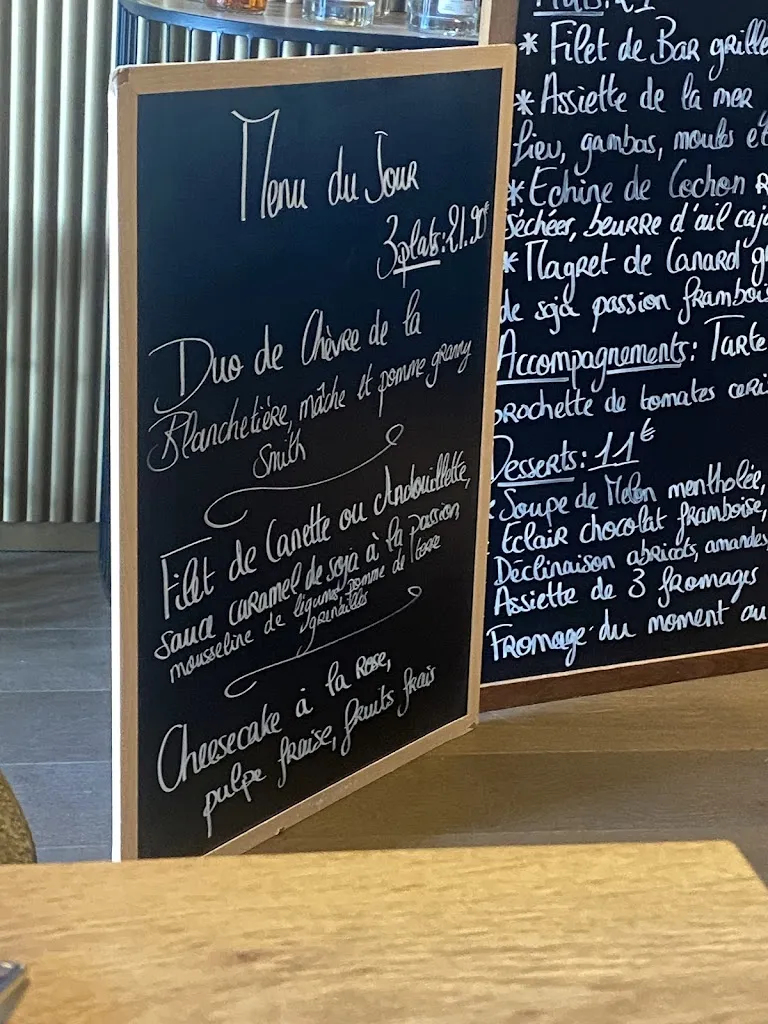 Menu du Jour
3 plats: 21.90€
Duo de Chèvre de la
Blanchetière, mâche et pomme granny
Smith
Filet de Canette ou Andouillette,
sauce caramel de soja à la passion,
mousseline de légumes, pomme de terre
grenailles
Cheesecake à la Rose,
pulpe fraise, fruits frais
* Filet de Bar grillé
* Assiette de la mer
lieu, gambas, moules et
* Echine de Cochon
séchées, beurre d'ail
* Magret de Canard
de soja passion
Accompagnements: Tarte
brochette de tomates
Desserts: 11€
Soupe de Melon mentholée,
Eclair chocolat framboise,
Déclinaison abricots, amandes
Assiette de 3 fromages
Fromage du moment au